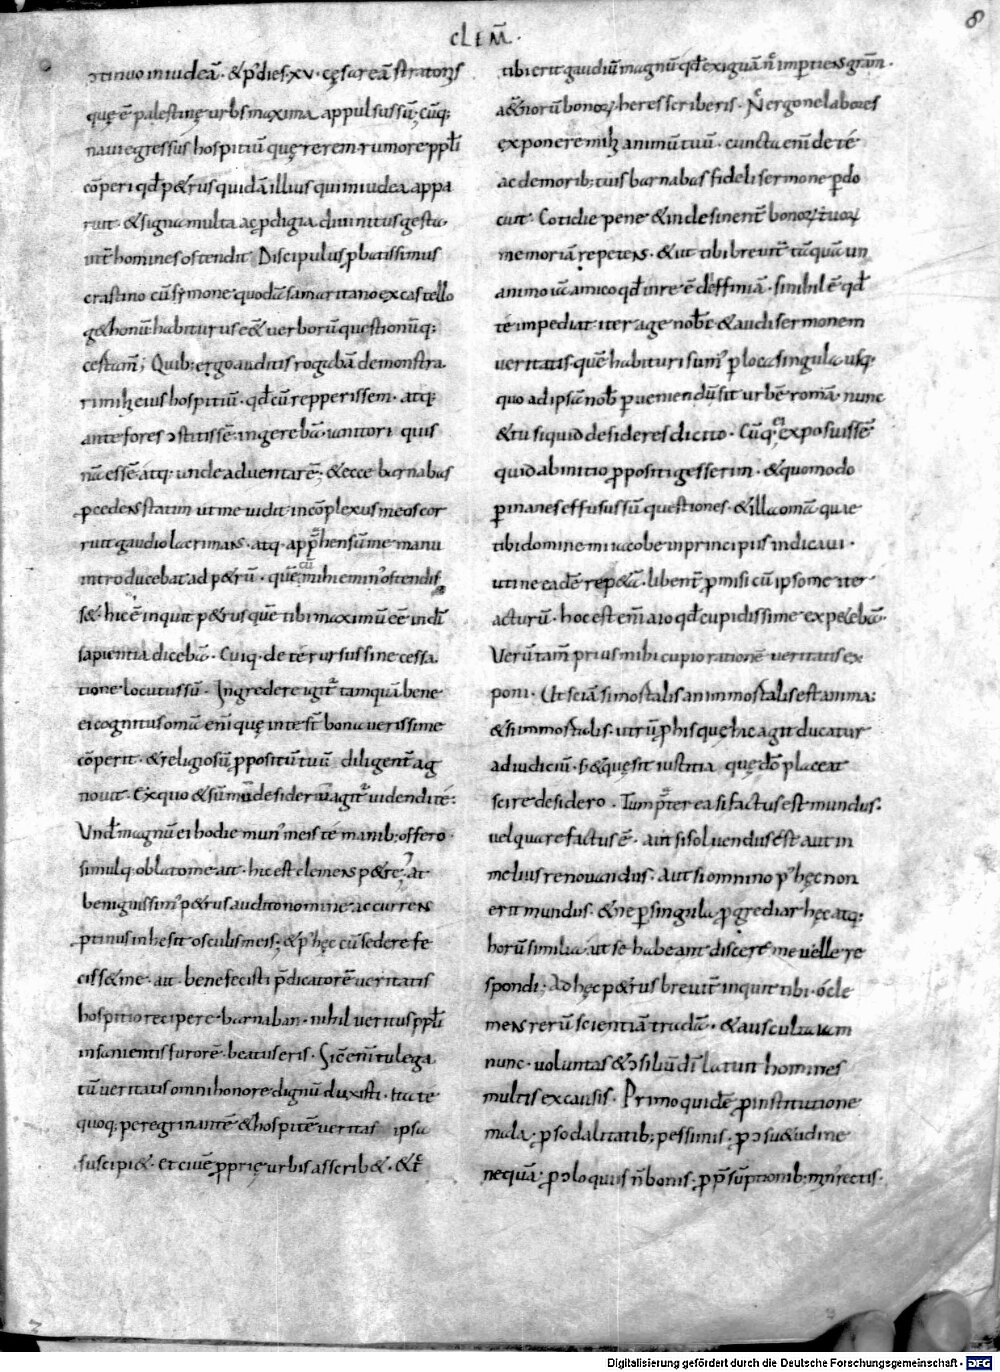 CLEM̄.
8
ↄtinuo iniudeā. & p̄ dies xv. cęsareā stratonis
quę ē palestinę urbs maxima appulsus sū; cūq;
naui egressus hospitiū quęrerem rumore pp̄li
cōperi qd̄ p&rus quidā illius qui iniudea appa
ruit & signa multa ac p̄digia diuinitus gesta
int̄ homines ostendit Discipulus p̄batissimus
crastino cū symone quodā samaritano ex castello
g&honū habiturus eē& uerborū questionūq;
cestam̄; Quib; ergo auditis rogabā demonstra
ri mih eius hospitiū. qd̄ cū repperissem. atq;
ante fores ↄstitissē. ingerebā ianitori quis
nā essē atq; unde aduentarē; & ecce barnabas
p̄cedens statim ut me uidit in cōplexus meos cor
ruit gaudio lacrimans. atq. app̄hensū me manu
introducebat ad p&rū. quē cū mihi emin' ostendis
s& hic ē inquit p&rus quē tibi maximū eē in dī
sapientia dicebā. Cuiq. de te rursus sine cessa
tione locutus sū. Ingredere igit̄ tamquā bene
ei cognitus omā enī quę in te st̄ bona uerissime
cōperit. & religiosū p̄positū tuū diligent̄ ag
nouit. Ex quo & sūm̄ desideriū agit̄ uidendi té:
Und̄ magnū ei hodie mun' meis té manib; offero.
simulq; oblato me ait. hic est clemens p&re. at
benignissim' p&rus audito nomine accurrens
p̄tinus inhesit osculis meis; & p' hęc cū sedere fe
ciss& me. ait. bene fecisti p̄dicatorē ueritatis
hospitio recipere barnaban. nihil ueritus pp̄li
insanientis furorē. beatus eris. Sic enī tu lega
tū ueritatis omni honore dignū duxisti. ita té
quoq; peregrinantē & hospitē ueritas ipsa
suscipi&. Et ciuē p̄prię urbis asscrib&. & t̄
tibi erit gaudiū magnū qd̄ exiguā n̄ impertiens grām.
a&norū bonorū heres scriberis. Nē ergo ne labores
exponere mih animū tuū. cuncta enī de té
ac de morib; tuis barnabas fideli sermone p̄do
cuit Cotidie pene & indesinent̄ bonorū tuorū
memoriā repetens. & ut tibi breuit̄ tāquā un
animo iā amico qd̄ in re ē deffiniā. si nihil ē qd̄
té impediat. iter age nob̄c & audi sermonem
ueritatis. quē habituri sum' p̄ loca singula usq.
quo ad ipsā nob̄ perueniendū sit urbē romā. nunc
& tu si quid desideres dicito. Cūq; ei exposuissē
quid ab initio p̄positi gesserim. & quomodo
p̄ inanes effusus sū questiones. & illa omā quae
tibi domine mi iacobe in principiis indicaui.
ut ne eadē rep&ā. libent̄ p̄misi cū ipso me iter
acturū. hoc est enī aio qd̄ cupidissime expetebā.
Verū tam̄ prius mihi cupio rationē ueritatis ex
poni. Ut sciā si mortalis an immortalis est anima:
& si immortalis. utrū p̄ his quę hac agit ducatur
ad iudiciū. s; & quę sit iustitia quę dō placeat
scire desidero. Tum p̄terea si factus est mundus.
uel quare factus ē. aut si soluendus est aut in
melius renouandus. aut si omnino p' hęc non
erit mundus. & ne p̄ singula p̄grediar hęc atq;
horū similia ut se habeant discere me uelle re
spondi; Ad hęc p&rus breuit̄ inquit tibi. o cle
mens rerū scientiā tradā. & ausculta iam
nunc. uoluntas & ↄsiliū dī latuit homines
multis ex causis. Primo quidē p̄ institutione
mala. p̄ sodalitatib; pessimis. p̄ ↄsu&udine
nequā. p̄ ↄloquiis n̄ bonis. p̄ p̄sūptionib; n̄ rectis.
Digitalisierung gefördert durch die Deutsche Forschungsgemeinschaft - DFG